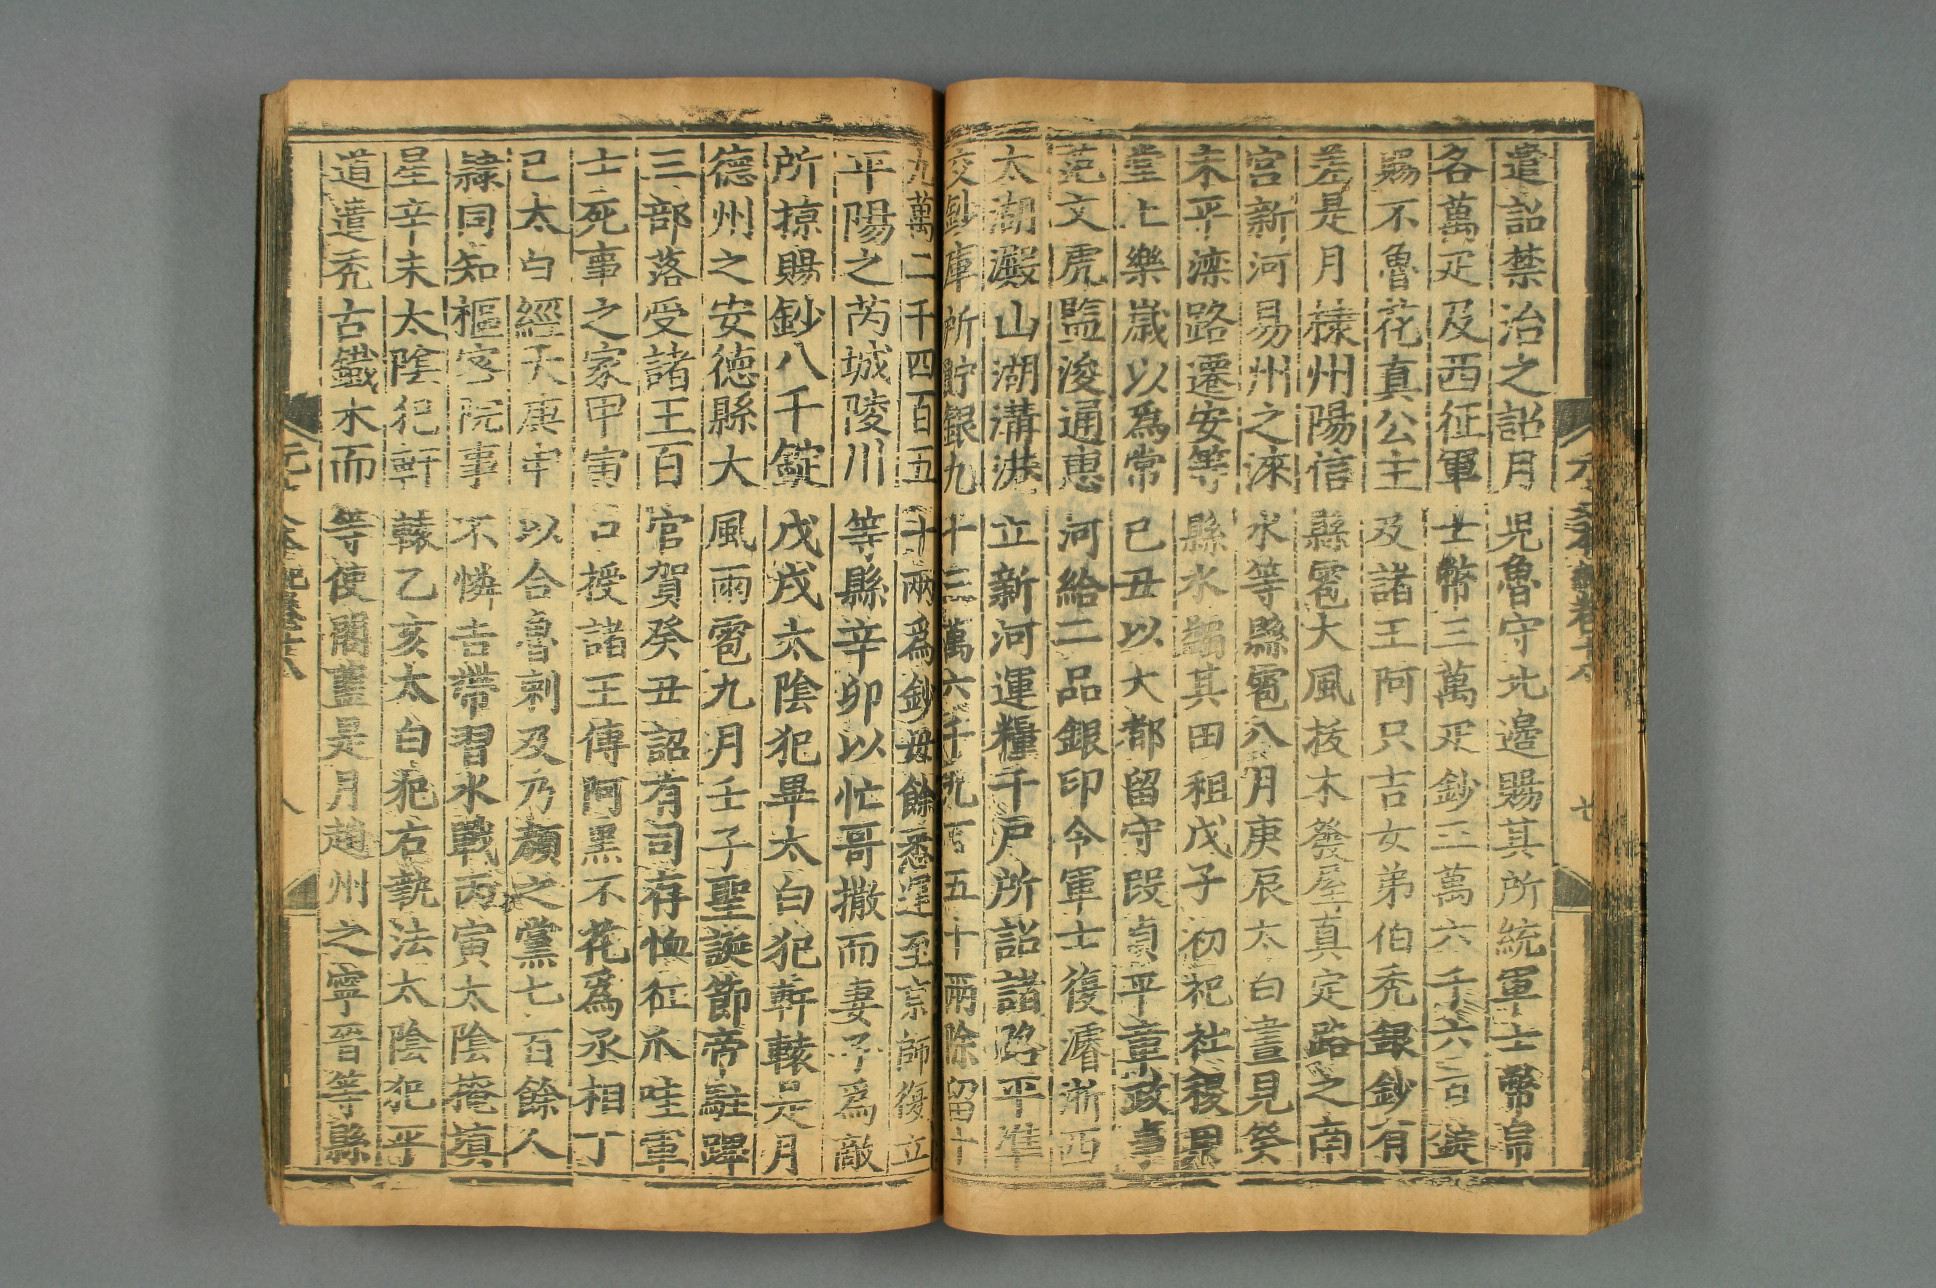 遣詔禁治之詔月兒魯守北邊賜其所統軍士幣帛
各萬疋及西征軍士幣三萬疋鈔三萬六千六百錠
賜不魯花真公主及諸王阿只吉女弟伯禿銀鈔有
差是月棣州陽信縣雹大風拔木發屋真定路之南
宮新河易州之淶水等縣雹八月庚辰太白晝見癸
未平灤路遷安等縣水蠲其田租戊子初祀社稷用
堂上樂歲以爲常己丑以大都留守段貞平章政事
范文虎監浚通惠河給二品銀印令軍士復濬浙西
太湖澱山湖溝港立新河運糧千戶所詔諸路平準
交鈔庫所貯銀九十三萬六千九百五十兩除留十
九萬二千四百五十兩爲鈔母餘悉運至京師復立
平陽之芮城陵川等縣辛卯以忙哥撒而妻子爲敵
所掠賜鈔八千錠戊戌太陰犯畢太白犯軒轅是月
德州之安德縣大風雨雹九月壬子聖誕節帝駐蹕
三部落受諸王百官賀癸丑詔有司存恤征爪哇軍
士死事之家甲寅口授諸王傅阿黑不花爲丞相丁
巳太白經天庚申以合魯剌及乃顏之黨七百餘人
隸同知樞密院事不憐吉帶習水戰丙寅太陰掩填
星辛未太陰犯軒轅乙亥太白犯右執法太陰犯平
道遣禿古鐵木而等使闍藍是月趙州之寧晉等縣